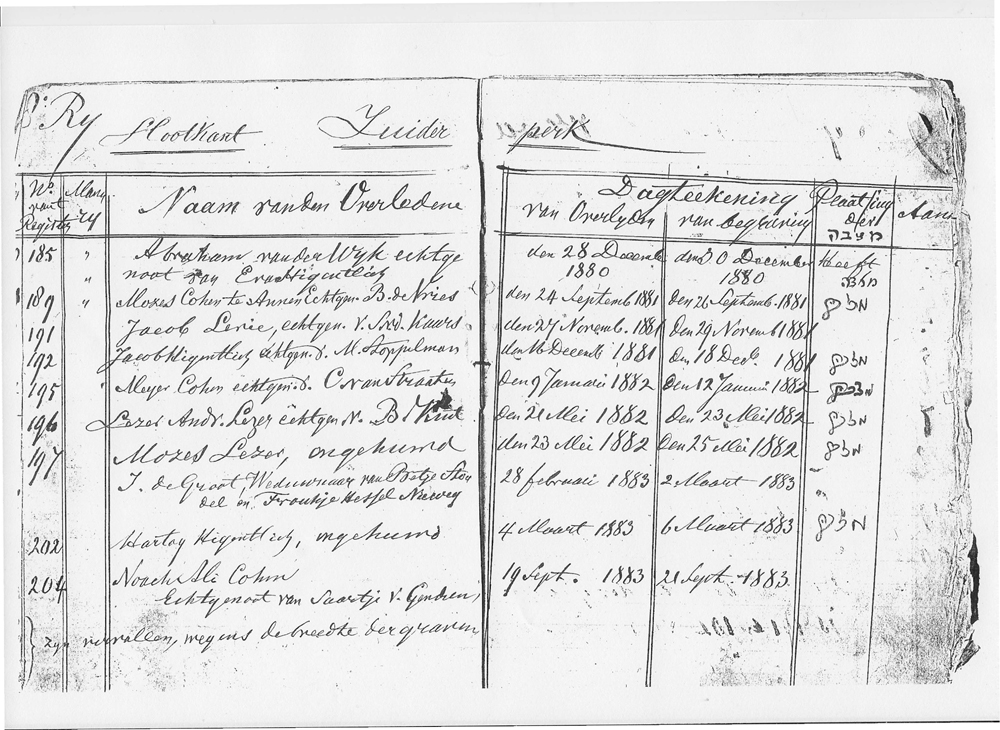 Ry Slootkant Zuider perk
No. vant Register
Naam van den Overledene
Dagteekening
van Overlyden van begraving
Plaatsing der מצבה
Aan
185 " Abraham van der Wyk echtge den 28 Decemb den 30 December Heeft
noot van Eva Higentlich 1880 1880 מצבה
189 " Mozes Cohen te Annen Echtgen. B. de Vries den 24 Septemb 1881 den 26 Septemb. 1881
191 Jacob Levie, echtgen. v. Kaars den 27 Novemb. 1881 den 29 Novemb 1881
192 Jacob Higentlich echtgen. v. M. Stoppelman den 16 Decemb 1881 den 18 Decb. 1881
195 " Meyer Cohen echtgen. v. C. van Straaten den 9 Januari 1882 den 12 Januari 1882
196 Lezer Andr. Lezer echtgen. v. B. den 21 Mei 1882 den 23 Mei 1882
197 Mozes Lezer, ongehuwd den 23 Mei 1882 den 25 Mei 1882
J. de Groot, Weduwnaar van Betje Sten 28 februari 1883 2 Maart 1883 "
del en Froukje Hessel Nieweg
202 Hartog Higentlich, ongehuwd 4 Maart 1883 6 Maart 1883
204 Noach Eli Cohen 19 Sept. 1883 21 Sept. 1883
Echtgenoot van Saartje v. Gendren,
} zyn vervallen, wegens de breedte der graven